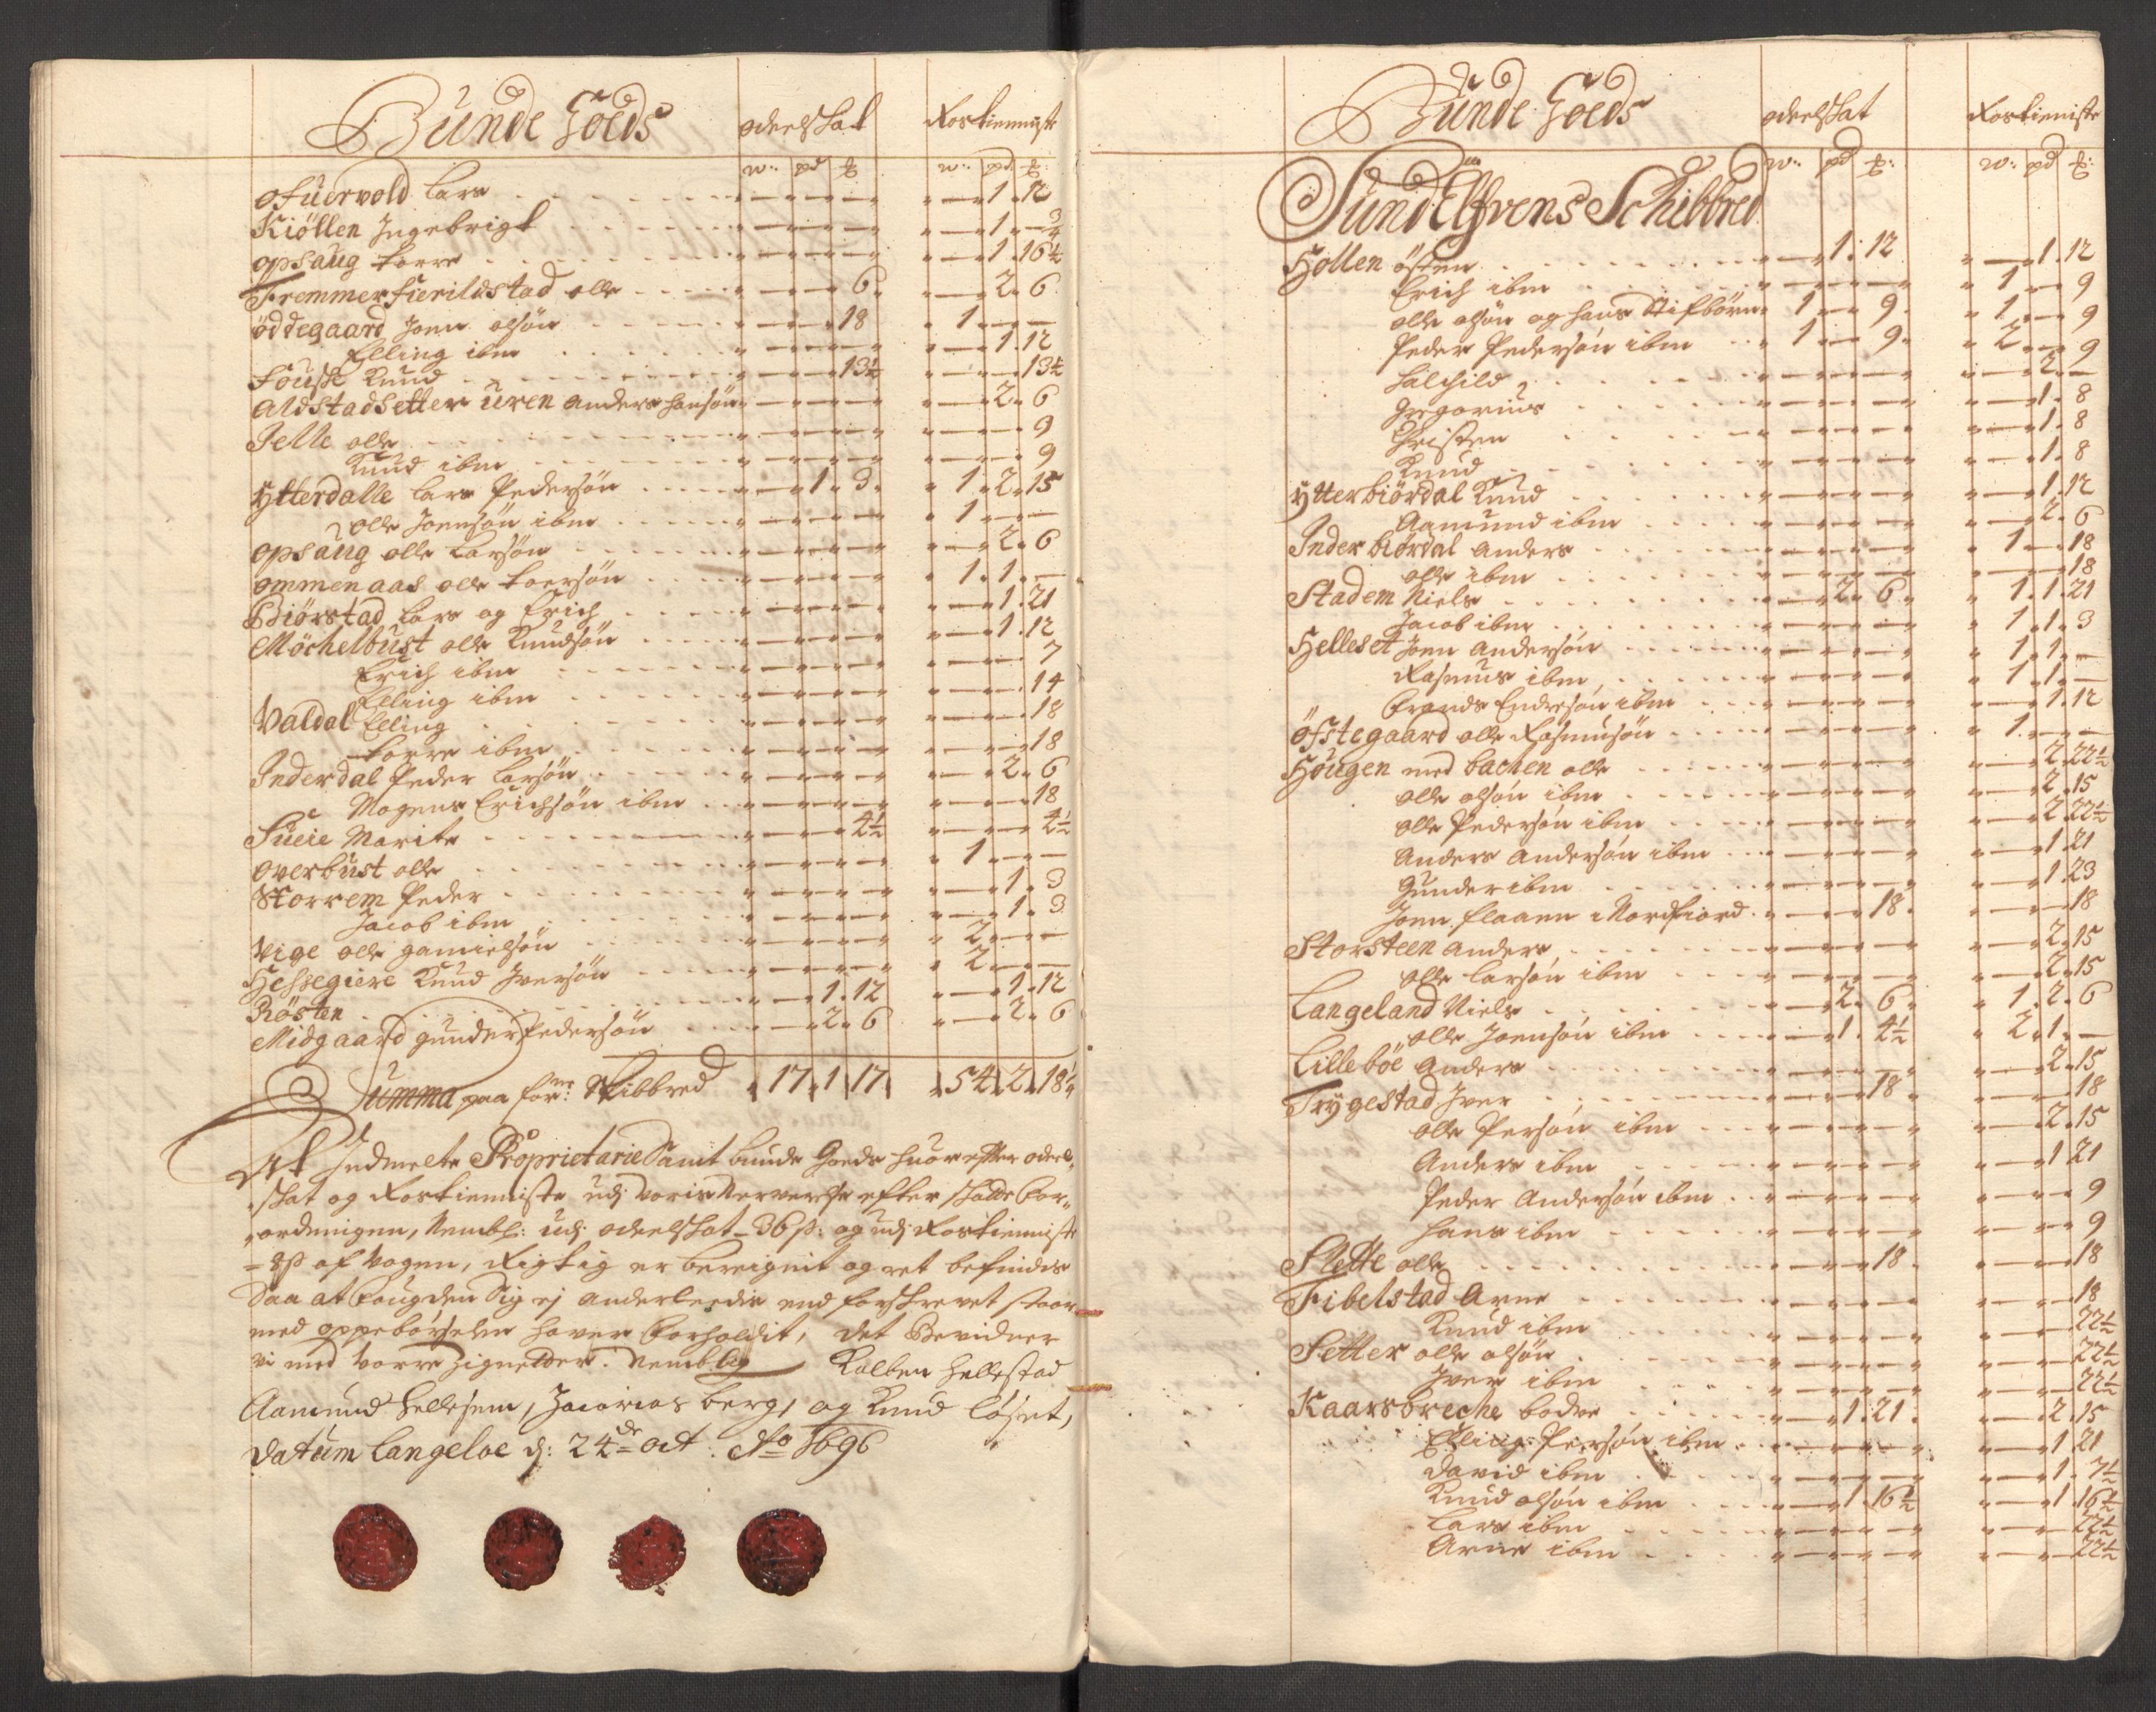 Bunde Goeds odelskat Rostienniste
w: pd ℔ w: pd ℔
Ofuervold Lars - - - - - - - 1 12
Kiöllen Ingebrigt - - - - - - - 1 - 3/4
opsaug Torre - - - - - - - 1 16 1/2
Fremmerfierildstad olle - - - 6 - 2 6
öddegaard Joen olsön - - - 18 1 - -
Elling ibm - - - - - 1 12
Fouske Knud - - - 13 1/2 - - 13 1/2
Aldstadsetter uren Anders Hansön - - - - 2 6
Jelle olle - - - - - - 9
Knud ibm - - - - - - 9
Ytterdalle Lars Pedersön - 1 3 1 2 15
olle Joensön ibm - - - 1 - -
opsaug olle Larsön - - - - 2 6
ommenaas olle Toersön - - - 1 1 -
Biörstad Lars og Erich - - - - 1 21
Möchelbust olle Knudsön - - - - 1 12
Erich ibm - - - - - 7
Elling ibm - - - - - 14
Valdal Elling - - - - - 18
Torre ibm - - - - - 18
Inderdal Peder Larsön - - - - 2 6
Mogens Erichsön ibm - - - - - 18
Sueie Marite - - 4 1/2 - - 4 1/2
overbust olle - - - 1 - -
Storrem Peder - - - - 1 3
Jacob ibm - - - - 1 3
Vige olle gamielsön - - - 2 - -
Hessegiere Knud Iversön - - - 2 - -
Rösten - 1 12 - 1 12
Midgaard gunder Pedersön - 2 6 - 2 6
Summa paa forne: Skibbred 17 1 17 54 2 18 1/4
At Indmelte Proprietarie Samt bunde Goeds huor efter odels
skat og Rostienniste udj voris Nerverelse efter skatte For¬
ordningen, Nembl: udj odelskat 36 s: og udj Rostienniste
- 8 s af vogen, Rigtig er bereignit og ret befindes
Saa at Fougden Sig ej anderledis end forskrevet staar
med oppebörselen haver forholdit, det Bevidner
vi med vorre Zignetter. Nemblig Kolben Hellestad
Aamund Hellesem, Jacorias berg, og Knud Löset,
Datum Langeloe d: 24de oct: Ao 1696
Bunde Goeds odelskat Rostieniste
w: pd ℔: w: pd ℔:
SundElfvens Schibbred
Hollen östen - 1 12 - 1 12
Erich ibm - - - 1 - 9
olle olsön og hans Stifbörn 1 - 9 1 - 9
Peder Pedersön ibm 1 - 9 2 - 9
Halchild - - - - 2 -
Gregorius - - - - 1 8
Christen - - - - 1 8
Knud - - - - 1 8
Ytterbiördal Knud - - - - 1 12
Aamund ibm - - - - 2 6
Inderbiördal Anders - - - 1 - 18
olle ibm - - - - - 18
Stadem Niels - 2 6 1 1 21
Jacob ibm - - - 1 1 3
Helleset Joen Andersön - - - 1 1 -
Rasmus ibm - - - 1 1 -
Frands Endresön ibm - - - - 1 12
Öfstegaard olle Rasmusön - - - 1 - -
Hougen med bachen olle - - - - 2 22 1/2
olle olsön ibm - - - - 2 15
olle Pedersön ibm - - - - 2 22 1/2
Anders Andersön ibm - - - - 1 21
Gunder ibm - - - - 1 23
Joen Flaaen i Nordfiord - - 18 - - 18
Storsteen Anders - - - - 2 15
olle Larsön ibm - - - - 2 15
Langeland Niels - 2 6 1 2 6
olle Joensön ibm - 1 4 1/2 2 1 -
Lilleböe Anders - - - - 2 15
Trygestad Iver - - 18 - - 18
olle Persön ibm - - - - 2 15
Anders ibm - - - - 1 21
Peder Andersön ibm - - - - - 9
Hans ibm - - - - - 9
Slette olle - - 18 - - 18
Fibelstad Arne - - - - - 18
Knud ibm - - - - - 22 1/2
Setter olle olsön - - - - - 22 1/2
Iver ibm - - - - - 22 1/2
Kaarsbreche bodve - 1 21 - 2 15
Elling Persön ibm - - - - 1 21
David ibm - - - - 1 7 1/2
Knud olsön ibm - 1 16 1/2 - 1 16 1/2
Lars ibm - - - - - 22 1/2
Arne ibm - - - - - 22 1/2